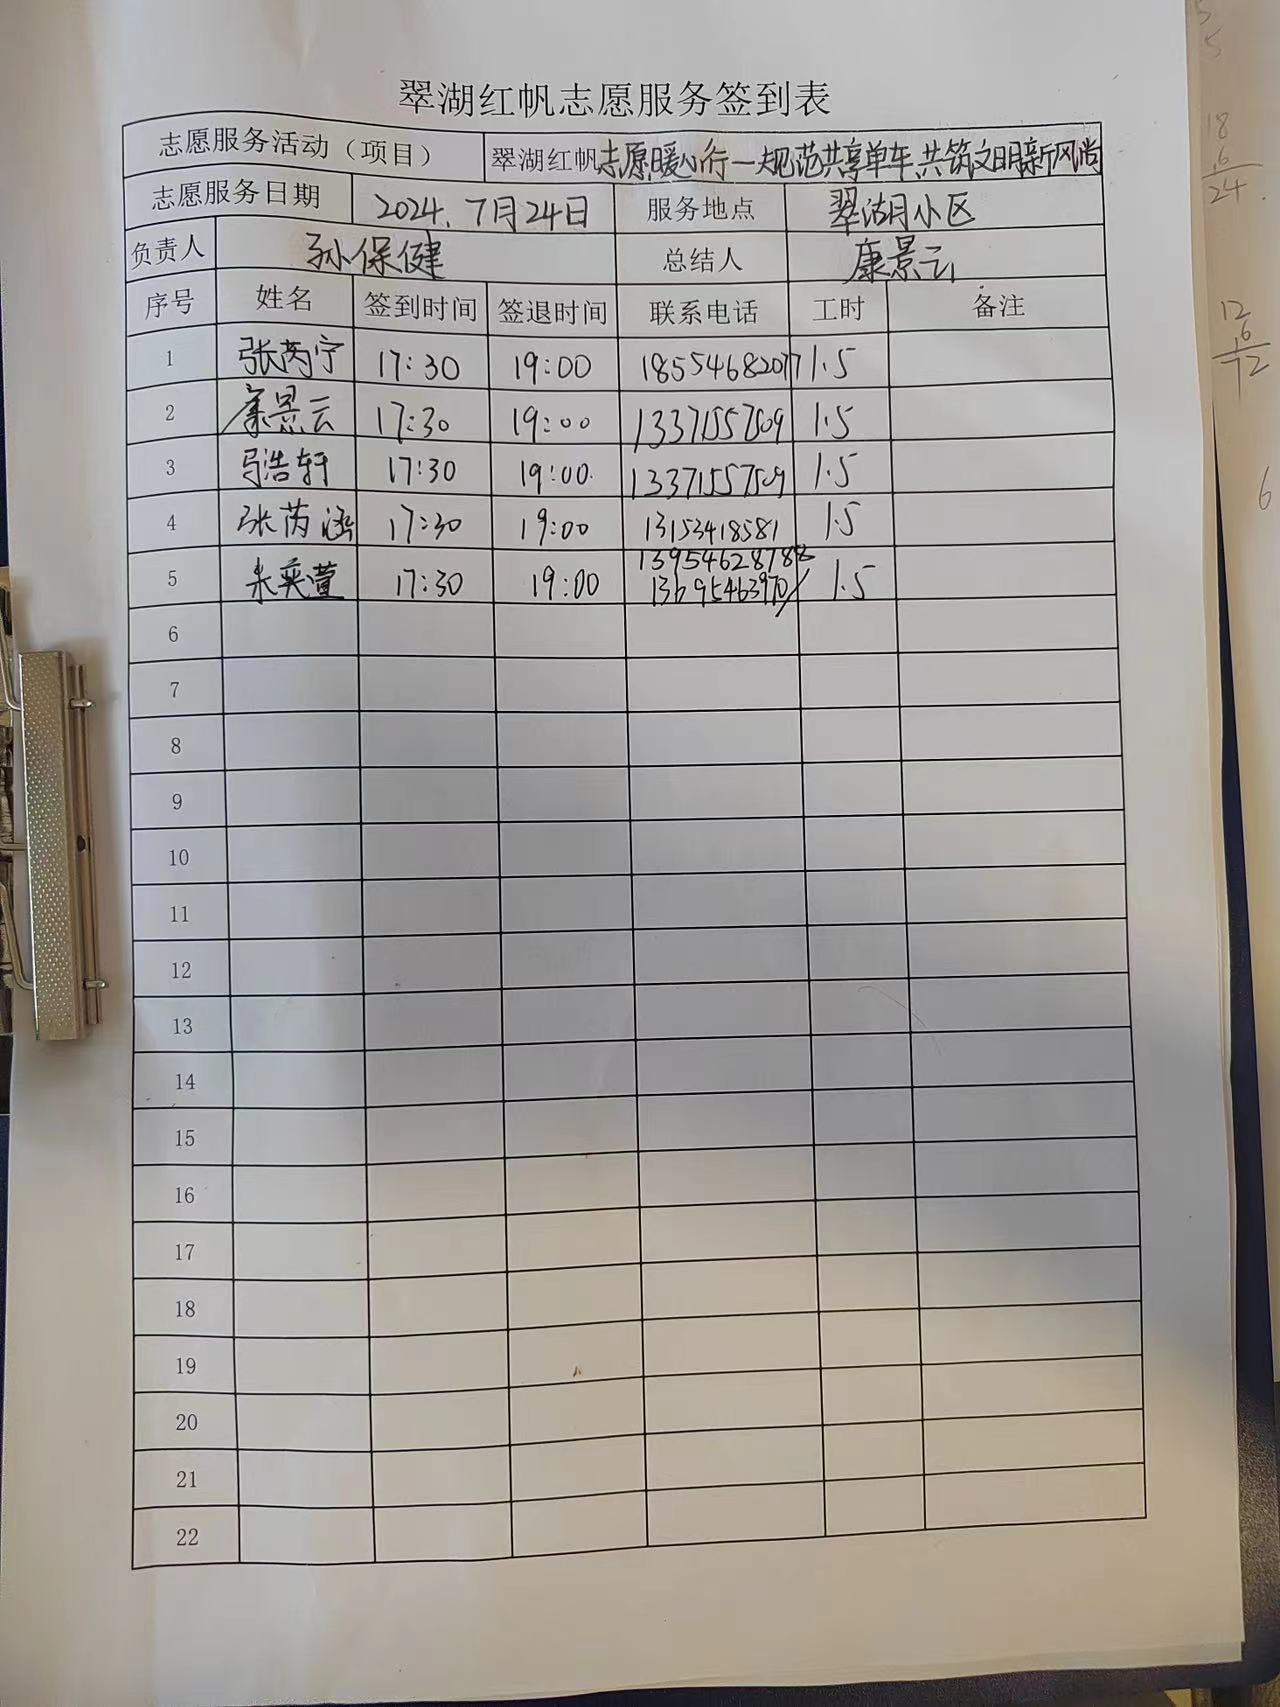 翠湖红帆志愿服务签到表
志愿服务活动（项目） 翠湖红帆志愿暖心行一规范共享单车 共筑文明新风尚
志愿服务日期 2024.7月24日 服务地点 翠湖月小区
负责人 孙保健 总结人 康景云
序号 姓名 签到时间 签退时间 联系电话 工时 备注
1 张芮宁 17:30 19:00 18554682077 1.5
2 康景云 17:30 19:00 13371557509 1.5
3 马浩轩 17:30 19:00 13371557509 1.5
4 张芮涵 17:30 19:00 13153418581 1.5
13954628788
5 朱奕萱 17:30 19:00 1.5
6
7
8
9
10
11
12
13
14
15
16
17
18
19
20
21
22
18
24
12
6
72
6